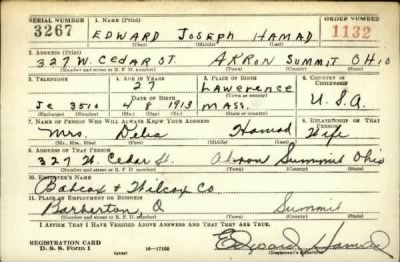 SERIAL NUMBER 1. NAME (Print) ORDER NUMBER
3267 EDWARD JOSEPH HAMAD 1132
(First) (Middle) (Last)
2. ADDRESS (Print)
327 W. CEDAR ST. AKRON SUMMIT OHIO
(Number and street or R. F. D. number) (Town) (County) (State)
3. TELEPHONE 4. AGE IN YEARS 5. PLACE OF BIRTH 6. COUNTRY OF CITIZENSHIP
27 LAWERENCE
(Town or county)
Je 3510 4 8 1913 MASS. U.S.A
(Exchange) (No.) (Mo.) (Day) (Yr.) (State or country)
7. NAME OF PERSON WHO WILL ALWAYS KNOW YOUR ADDRESS 8. RELATIONSHIP OF THAT PERSON
Mrs. Delia Hamad Wife
(Mr., Mrs., Miss) (First) (Middle) (Last)
9. ADDRESS OF THAT PERSON
327 W. Cedar St. Akron Summit Ohio
(Number and street or R. F. D. number) (Town) (County) (State)
10. EMPLOYER'S NAME
Babcox & Wilcox Co.
11. PLACE OF EMPLOYMENT OR BUSINESS
Barberton, O Summit
(Number and street or R. F. D. number) (Town) (County) (State)
I AFFIRM THAT I HAVE VERIFIED ABOVE ANSWERS AND THAT THEY ARE TRUE.
REGISTRATION CARD
D. S. S. Form 1 (over) 16-17105 Edward Hamad
(Registrant's signature)